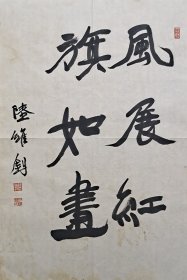 風展紅
旗如畫
陸維釗